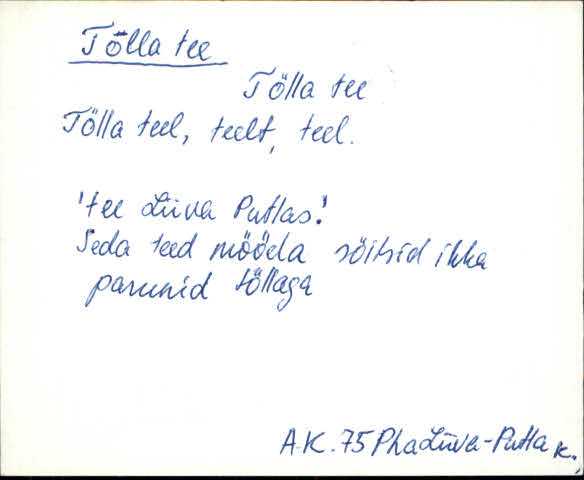 Tõlla tee
Tölla tee
Tölla teel, teelt, teel.
'tee Liiva Putlas!
Seda teed mööda sõitsid ikka
parunid tõllaga
A.K. 75 Pha Liiva-Putla k.